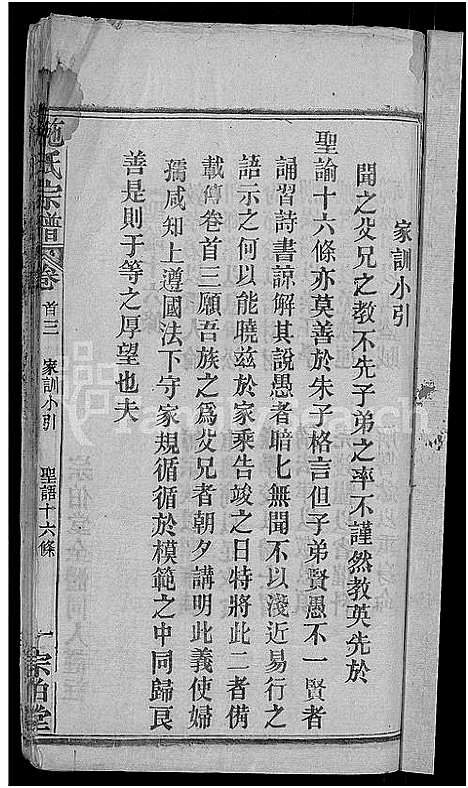 家訓小引
聞之父兄之教不先子弟之率不謹然教英先於
聖諭十六條亦莫善於朱子格言但子弟賢愚不一賢者
誦習詩書諒解其說愚者暗匕無聞不以淺近易行之
語示之何以能曉茲於家乘告竣之日特將此二者備
載傳卷首三願吾族之為父兄者朝夕講明此義使婦
孺咸知上遵國法下守家規循循於模範之中同歸良
善是則于等之厚望也夫
施氏宗譜 卷首三 家訓小引 聖語十六條 一 宗伯堂
FamilySearch